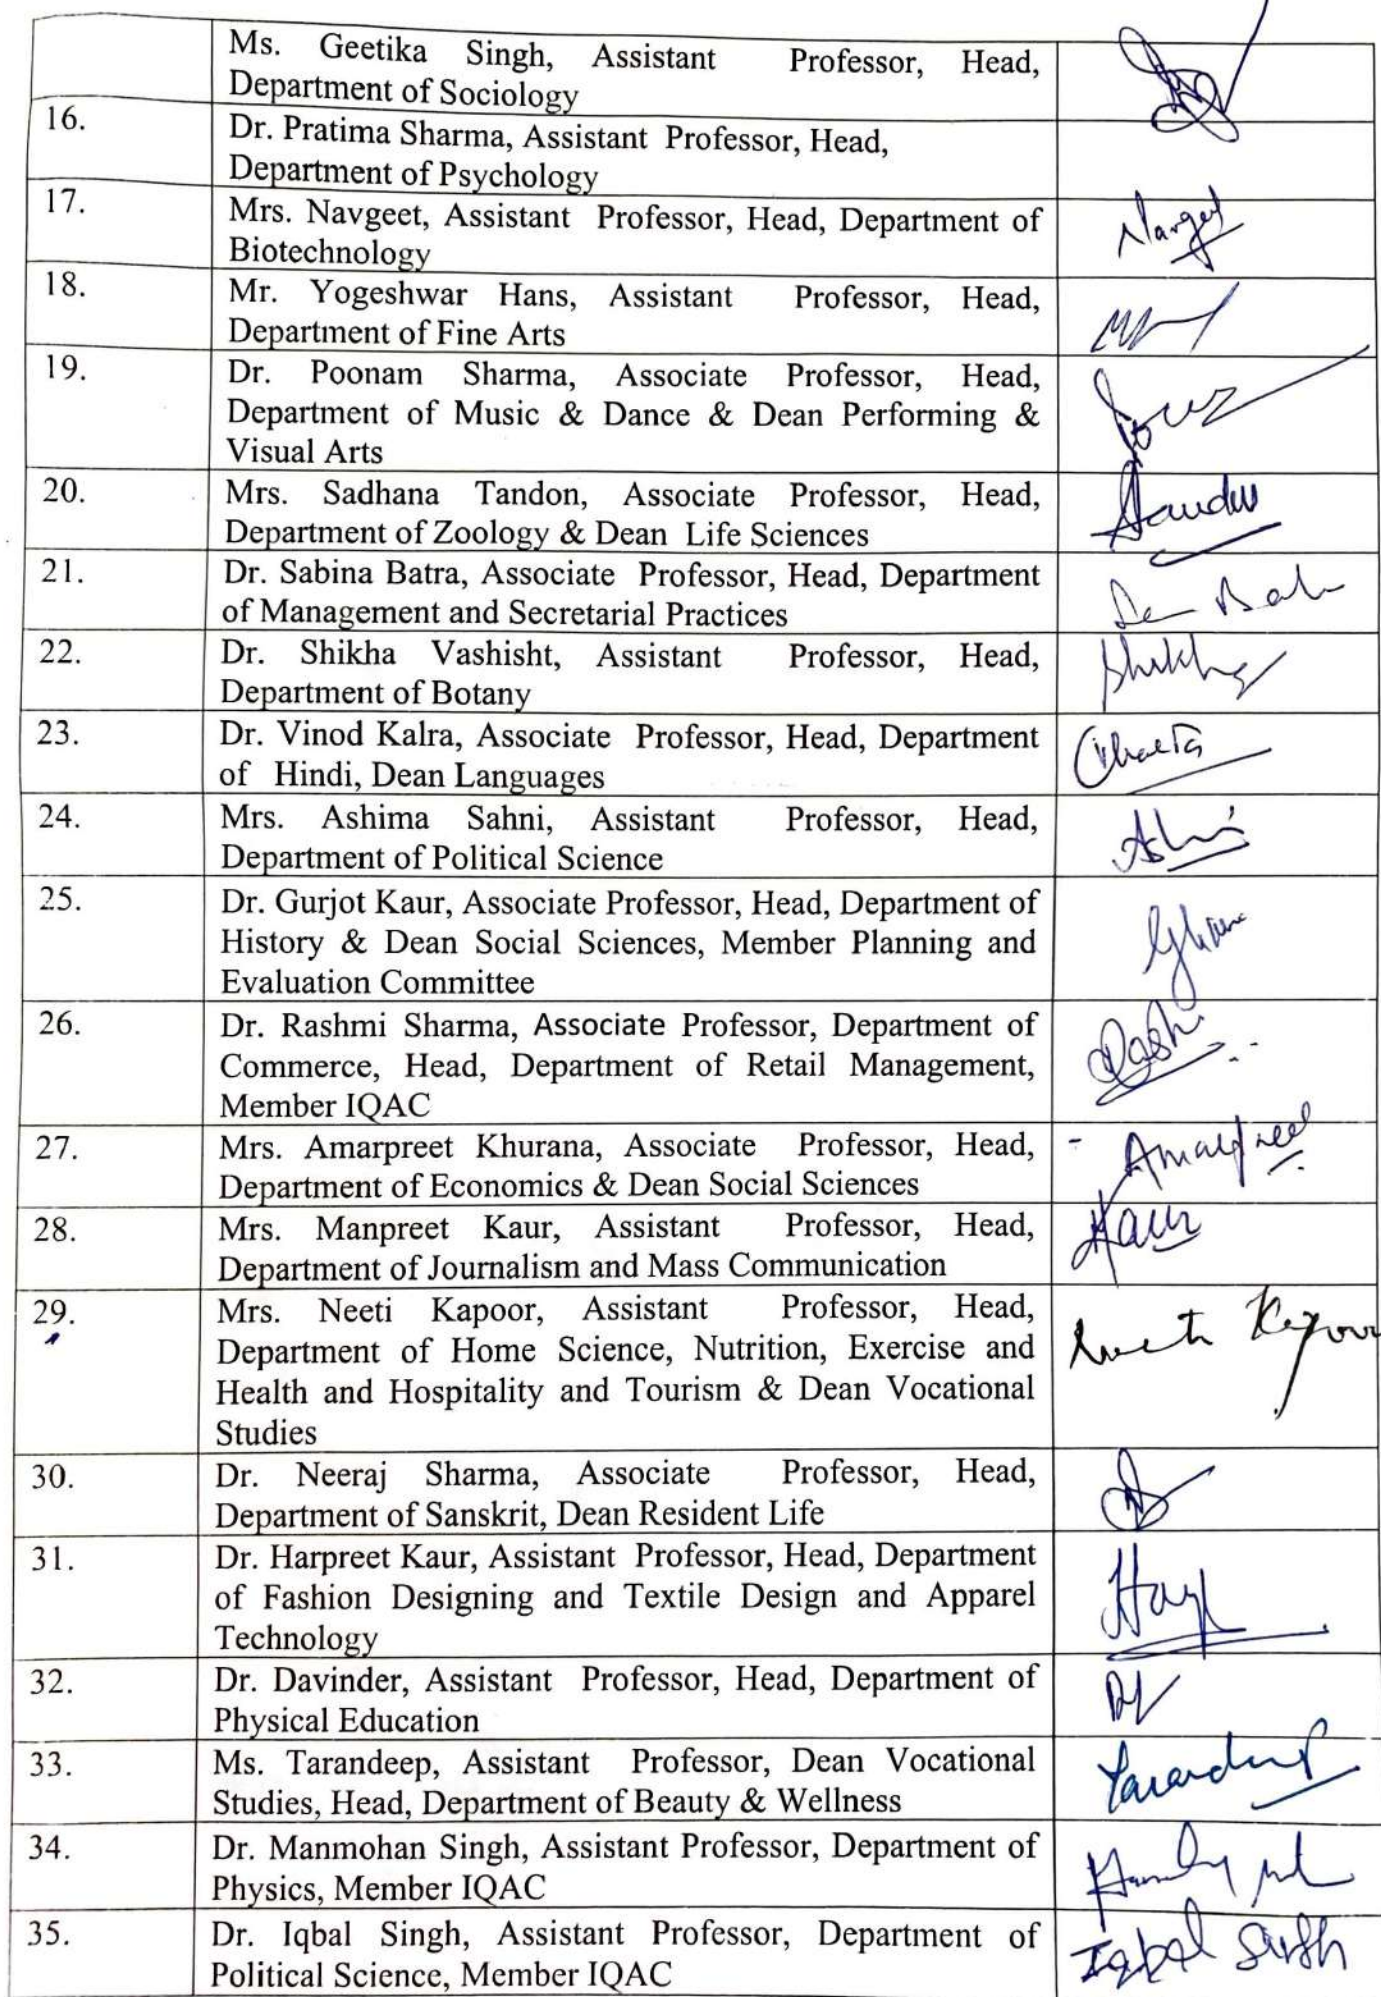 Ms. Geetika Singh, Assistant Professor, Head,
Department of Sociology
16.
Dr. Pratima Sharma, Assistant Professor, Head,
Department of Psychology
17.
Mrs. Navgeet, Assistant Professor, Head, Department of
Biotechnology
Navgeet
18.
Mr. Yogeshwar Hans, Assistant Professor, Head,
Department of Fine Arts
19.
Dr. Poonam Sharma, Associate Professor, Head,
Department of Music & Dance & Dean Performing &
Visual Arts
20.
Mrs. Sadhana Tandon, Associate Professor, Head,
Department of Zoology & Dean Life Sciences
21.
Dr. Sabina Batra, Associate Professor, Head, Department
of Management and Secretarial Practices
22.
Dr. Shikha Vashisht, Assistant Professor, Head,
Department of Botany
Shikha
23.
Dr. Vinod Kalra, Associate Professor, Head, Department
of Hindi, Dean Languages
24.
Mrs. Ashima Sahni, Assistant Professor, Head,
Department of Political Science
25.
Dr. Gurjot Kaur, Associate Professor, Head, Department of
History & Dean Social Sciences, Member Planning and
Evaluation Committee
26.
Dr. Rashmi Sharma, Associate Professor, Department of
Commerce, Head, Department of Retail Management,
Member IQAC
27.
Mrs. Amarpreet Khurana, Associate Professor, Head,
Department of Economics & Dean Social Sciences
Amarpreet
28.
Mrs. Manpreet Kaur, Assistant Professor, Head,
Department of Journalism and Mass Communication
Kaur
29.
Mrs. Neeti Kapoor, Assistant Professor, Head,
Department of Home Science, Nutrition, Exercise and
Health and Hospitality and Tourism & Dean Vocational
Studies
Neeti Kapoor
30.
Dr. Neeraj Sharma, Associate Professor, Head,
Department of Sanskrit, Dean Resident Life
31.
Dr. Harpreet Kaur, Assistant Professor, Head, Department
of Fashion Designing and Textile Design and Apparel
Technology
32.
Dr. Davinder, Assistant Professor, Head, Department of
Physical Education
33.
Ms. Tarandeep, Assistant Professor, Dean Vocational
Studies, Head, Department of Beauty & Wellness
Tarandeep
34.
Dr. Manmohan Singh, Assistant Professor, Department of
Physics, Member IQAC
35.
Dr. Iqbal Singh, Assistant Professor, Department of
Political Science, Member IQAC
Iqbal Singh